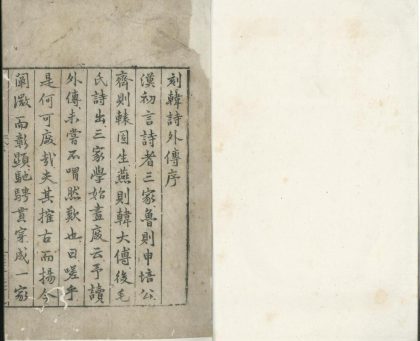 刻韓詩外傳序
漢初言詩者三家魯則申培公
齊則轅固生燕則韓大傅後毛
氏詩出三家學始盡廢云予讀
外傳未嘗不喟然歎也曰嗟乎
是何可廢哉夫其搉古而揚今
闡微而彰顯馳騁貫穿成一家